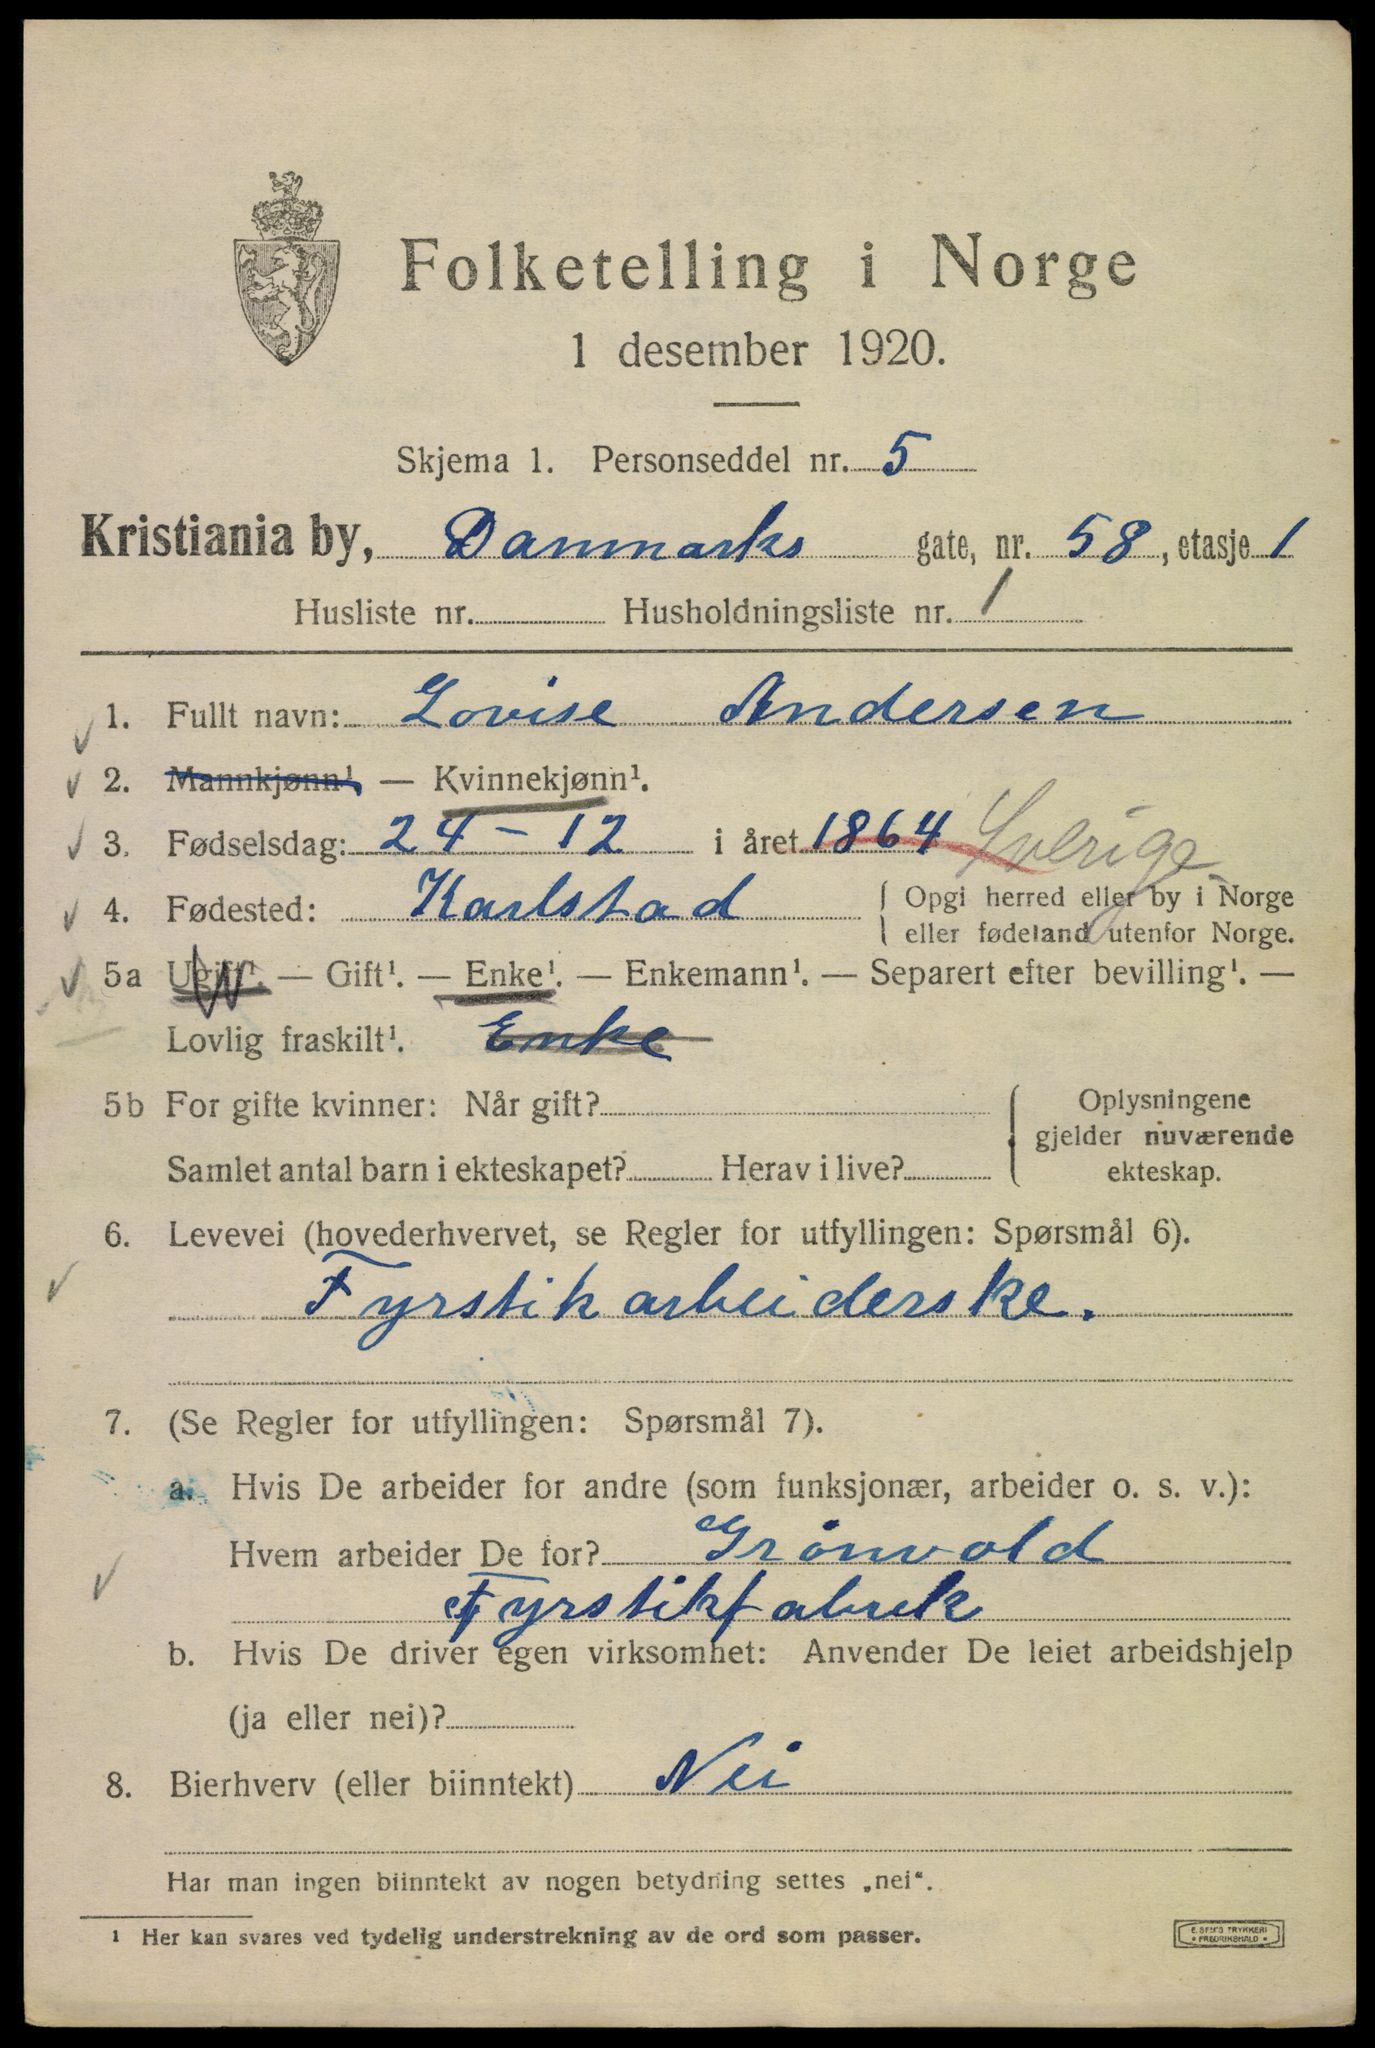 Folketelling i Norge
1 desember 1920.
Skjema 1. Personseddel nr. 5
Kristiania by, Danmarks gate, nr. 58, etasje 1
Husliste nr. Husholdningsliste nr. 1
1. Fullt navn: Lovise Andersen
2. Mannkjønn¹. — Kvinnekjønn¹.
3. Fødselsdag: 24 - 12 i året 1864 Sverige
4. Fødested: Karlstad { Opgi herred eller by i Norge
eller fødeland utenfor Norge.
5a Ugift¹. — Gift¹. — Enke¹. — Enkemann¹. — Separert efter bevilling¹. —
Lovlig fraskilt¹. Enke
5b For gifte kvinner: Når gift? { Oplysningene
gjelder nuværende
Samlet antal barn i ekteskapet? Herav i live? ekteskap.
6. Levevei (hovederhvervet, se Regler for utfyllingen: Spørsmål 6).
Fyrstikarbeiderske.
7. (Se Regler for utfyllingen: Spørsmål 7).
a. Hvis De arbeider for andre (som funksjonær, arbeider o. s. v.):
Hvem arbeider De for? Grönvold
Fyrstikfabrik
b. Hvis De driver egen virksomhet: Anvender De leiet arbeidshjelp
(ja eller nei)?
8. Bierhverv (eller biinntekt) Nei
Har man ingen biinntekt av nogen betydning settes „nei“.
¹ Her kan svares ved tydelig understrekning av de ord som passer.
E. SEM'S TRYKKERI
• FREDRIKSHALD •